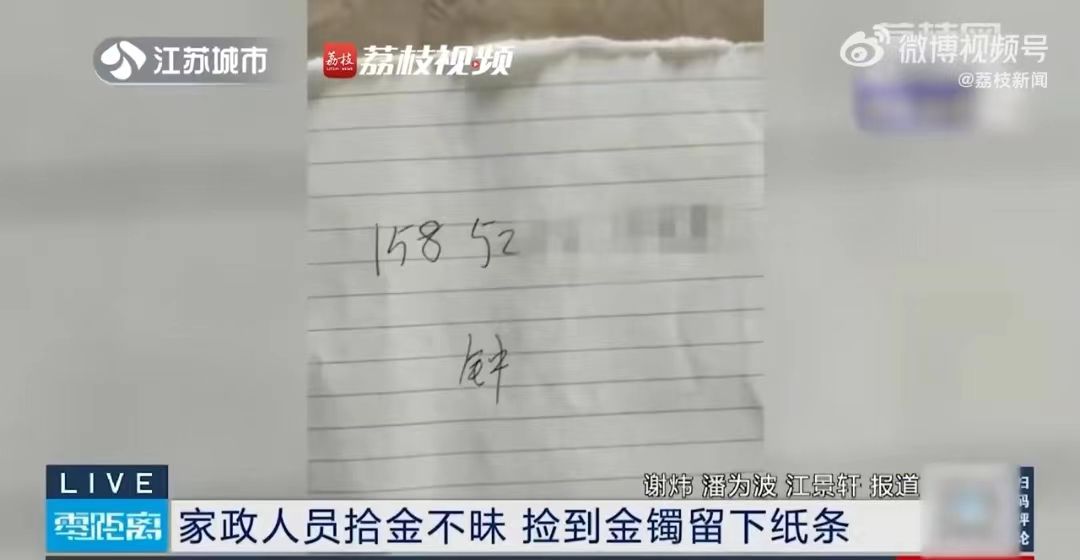 江苏城市
荔枝
荔枝视频
荔枝网
微博视频号
@荔枝新闻
158 52
钟
谢炜 潘为波 江景轩 报道
LIVE
零距离
家政人员拾金不昧 捡到金镯留下纸条
扫码评论